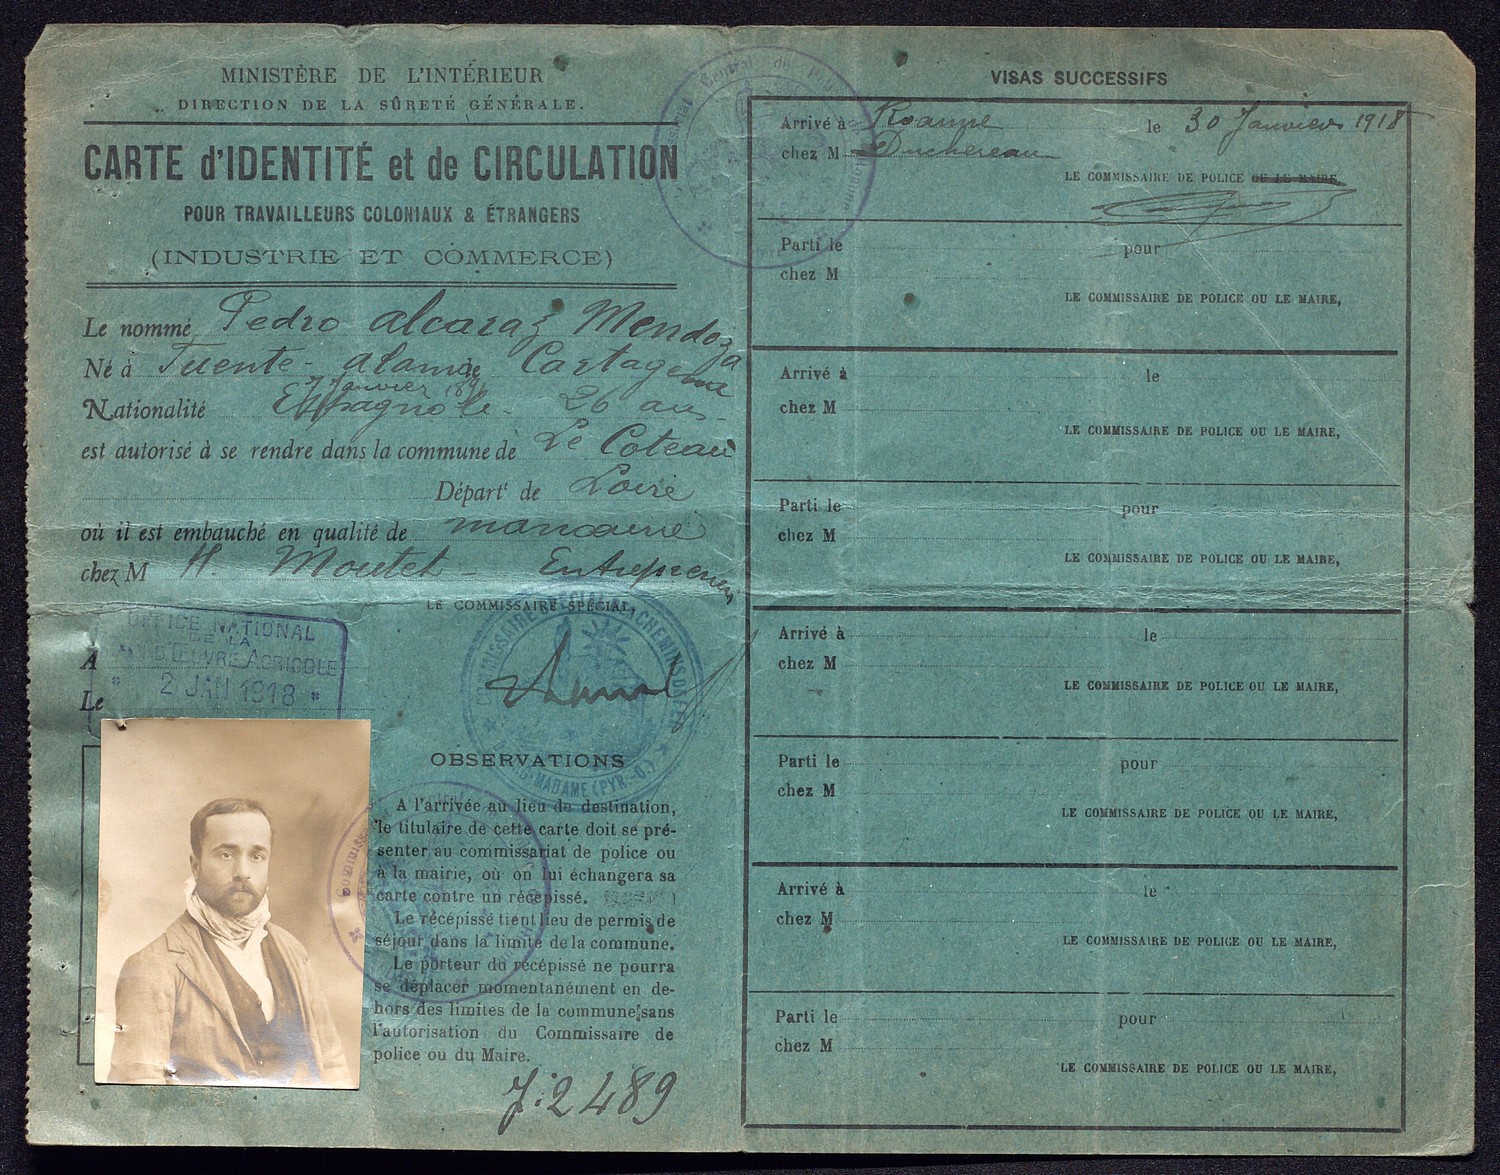 MINISTÈRE DE L'INTÉRIEUR
DIRECTION DE LA SÛRETÉ GÉNÉRALE.
CARTE d'IDENTITÉ et de CIRCULATION
POUR TRAVAILLEURS COLONIAUX & ÉTRANGERS
(INDUSTRIE ET COMMERCE)
Le nommé Pedro Alcaraz Mendoza
Né à Fuente-alamo de Cartagena
Janvier 1891
Nationalité Espagnole - 26 ans -
est autorisé à se rendre dans la commune de Le Coteau
Départt de Loire
où il est embauché en qualité de manoeuvre
chez M H. Moutet - Entrepreneur
LE COMMISSAIRE SPÉCIAL,
OFFICE NATIONAL
DE LA
D'ŒUVRE AGRICOLE
* 2 JAN 1918 *
A
Le
COMMISSAIRE SPÉCIAL CHEMINS DE FER
MADAME (PYR.-O.)
OBSERVATIONS
A l'arrivée au lieu de destination,
le titulaire de cette carte doit se pré-
senter au commissariat de police ou
à la mairie, où on lui échangera sa
carte contre un récépissé.
Le récépissé tient lieu de permis de
séjour dans la limite de la commune.
Le porteur du récépissé ne pourra
se déplacer momentanément en de-
hors des limites de la commune sans
l'autorisation du Commissaire de
police ou du Maire.
J:2489
Central de Police
VISAS SUCCESSIFS
Arrivé à Roanne le 30 Janvier 1918
chez M Duchereau
LE COMMISSAIRE DE POLICE OU LE MAIRE,
Parti le pour
chez M
LE COMMISSAIRE DE POLICE OU LE MAIRE,
Arrivé à le
chez M
LE COMMISSAIRE DE POLICE OU LE MAIRE,
Parti le pour
chez M
LE COMMISSAIRE DE POLICE OU LE MAIRE,
Arrivé à le
chez M
LE COMMISSAIRE DE POLICE OU LE MAIRE,
Parti le pour
chez M
LE COMMISSAIRE DE POLICE OU LE MAIRE,
Arrivé à le
chez M
LE COMMISSAIRE DE POLICE OU LE MAIRE,
Parti le pour
chez M
LE COMMISSAIRE DE POLICE OU LE MAIRE,